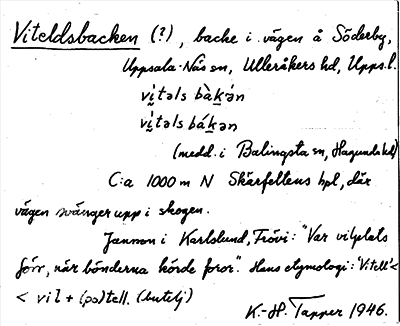 Viteldsbacken (?), backe i vägen å Söderby,
Uppsala-Näs sn, Ulleråkers hd, Upps. l.
vi̬təls bàkən
vi̬təls bákən
(medd. i Balingsta sn, Hagunda hd)
C:a 1000 m N Skärfeltens hpl, där
vägen svänger upp i skogen.
Janson i Karlslund, Frövi: "Var vilplats
förr, när bönderna körde foror." Hans etymologi: 'Vitell' <
< vil + (po)tell. (butelj)
K.-H. Tapper 1946.